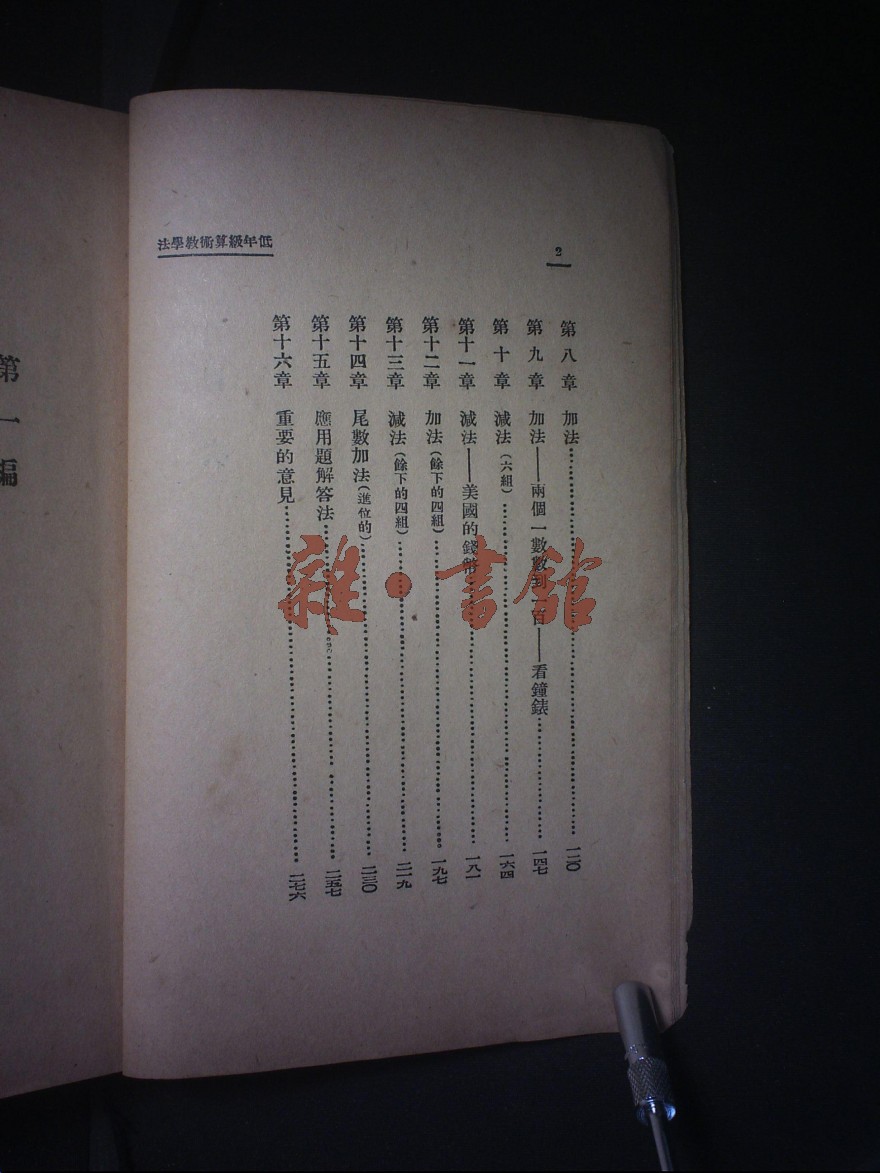 低年級算術敎學法
2
第八章 加法……一二〇
第九章 加法——兩個一數數到一百——看鐘錶……一四七
第十章 減法（六組）……一六四
第十一章 減法——美國的錢幣……一八一
第十二章 加法（餘下的四組）……一九七
第十三章 減法（餘下的四組）……二一九
第十四章 尾數加法（進位的）……二三〇
第十五章 應用題解答法……二五七
第十六章 重要的意見……二七六
第一編
雜·書館